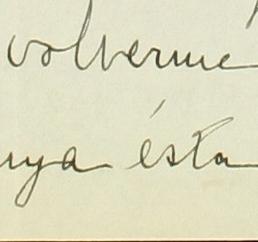 volverme
nya ésta